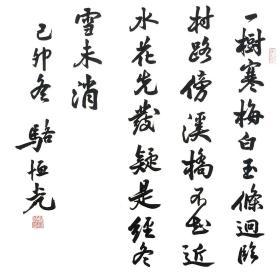 一樹寒梅白玉條迥臨
村路傍溪橋不知近
水花先發疑是經冬
雪未消
己卯冬 駱恒光